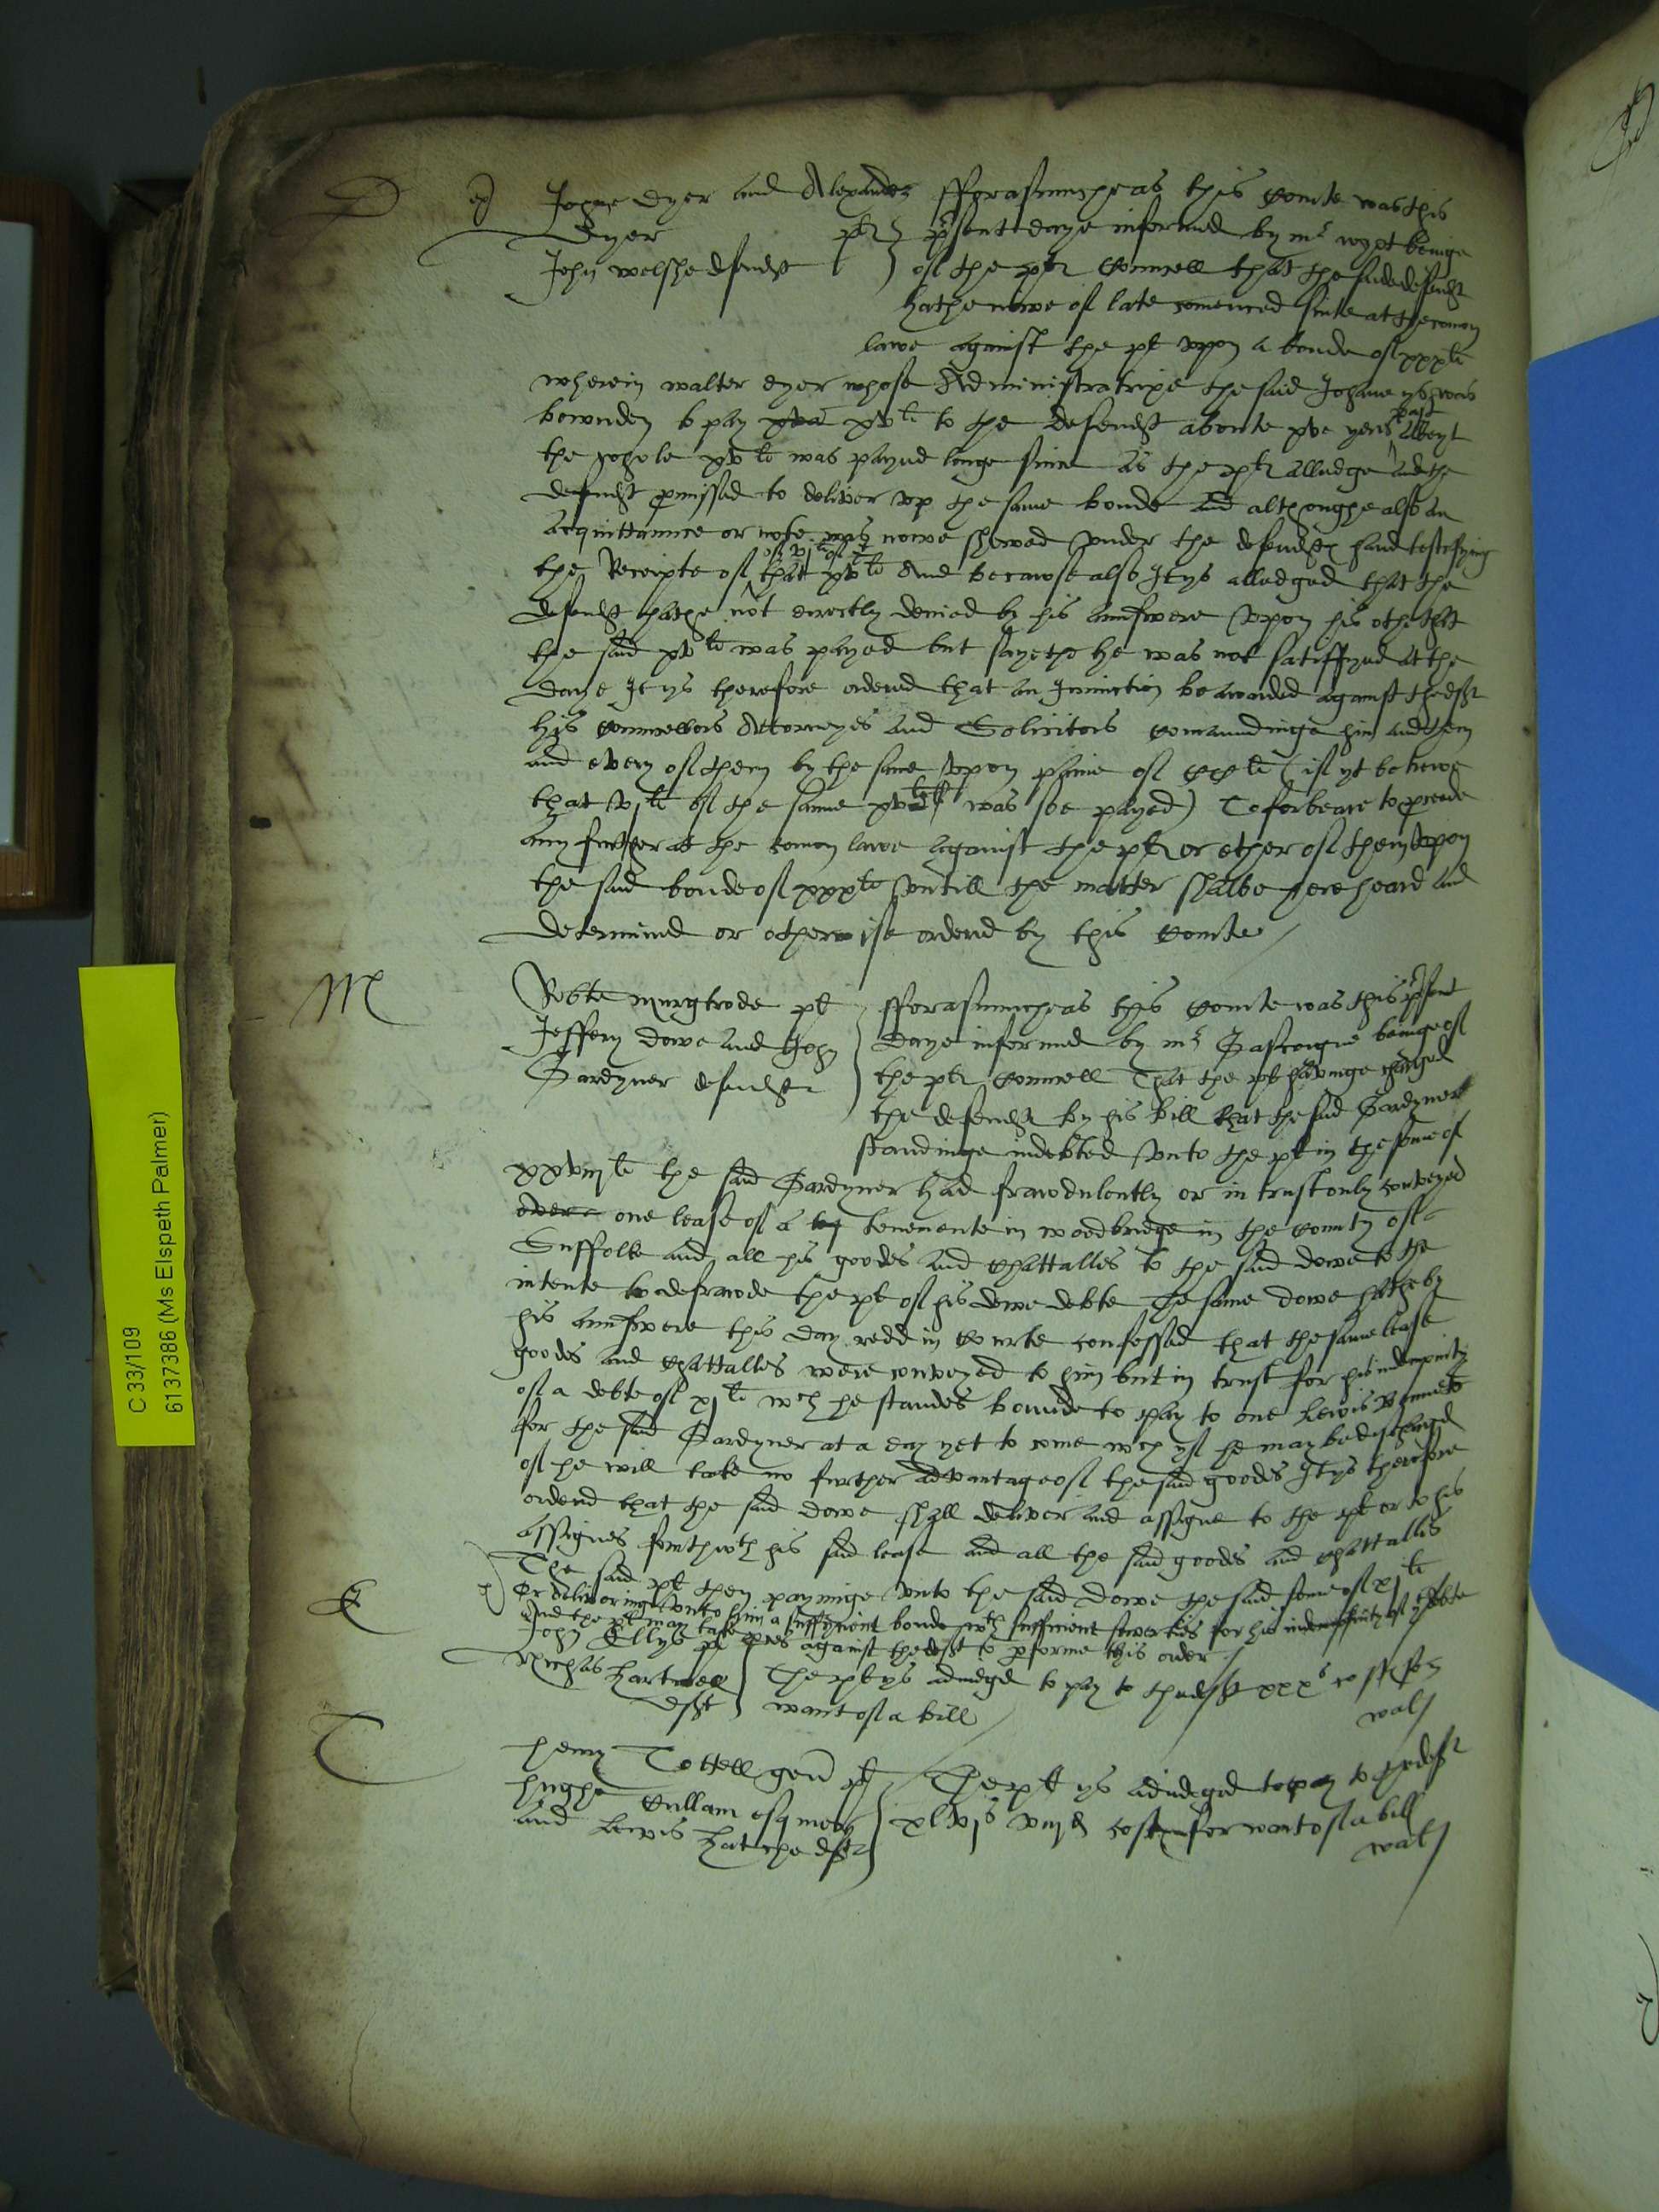 D
Johane Dyer and Alexander
Dyer pltes
John Welshe defendt
fforasmuche as this Courte was this
present daye informed by Mr beinge
of the pltes Councell that the saide defendt
hathe nowe of late comenced sute at the comon
lawe against the plt uppon a bonde of xxxli
wherein Walter Dyer whose Administratrixe the said Johane ys was
bownden to pay xvli to the defendt aboute xve yeres past Albeyt
the whole xvli was payed longe since as the pltes alledge And the
defendt promissed to deliver up the same bonde And althoughe also an
acquittannce or note was nowe shewed under the defendtes hand testefying
the Receipte of vjli of that xvli And becawse also yt ys alledged that the
defendt hathe not directly denied by his aunswere uppon his othe that
the said xvli was payed but sayethe he was not satisfyed at the
daye yt ys therefore ordered that an Iniunction be awarded against the deft
his Councellors Attorneyes and Solicitors comaundinge him and them
and every of them by the same uppon paine of CCli (if yt be trewe
that vjli of the same xvli was soe payed) To forbeare to procede
any further at the comon lawe against the pltes or ether of them uppon
the said bonde of xxxli untill the matter shalbe here heard and
determined or otherwise ordered by this Courte
M
Robte plt
Jeffery Dowe and John
Gardyner defendtes
fforasmucheas this Courte was this present
daye informed by Mr Gascoigne beinge of
the pltes Councell That the plt havinge charged
the defendtes by his bill that the said Gardyner
standinge indebted unto the plt in the some of
xxviijli the said Gardyner had frawdulently or in trust only conveyed
over one lease of a tenemente in Woodbridge in the County of
Suffolke and all his goodes and Chattalles to the said Dowe to the
intente to defrawde the plt of his dewe debte The same Dowe hathe by
his aunswere this day redd in Courte confessed that the same lease
goodes and Chattalles were conveyed to him but in trust for his indempnity
of a debte of xjli wch he standes bounde to pay to one Lewis
for the said Gardyner at a day yet to come wch yf he may be discharged
of he will take no further advantage of the said goodes yt ys therefore
ordered that the said Dowe shall deliver and assigne to the plt or to his
assignes forthwth his said lease and all the said goodes and Chattalles
The said plt then payinge unto the said Dowe the said some of xjli
Or deliveringe unto him a suffycient bonde wth sufficient sewerties for his indempnity of the debte
And the plt may take proces against the deft to performe this order
E
John Ellys plt
Nichas Hartwell
deft
The plt ys adiudged to pay to thedeft xxxs costes for
want of a bill
Wal
T
Henry Tottell gen plt
Hughe Cullam esquier
and Lewis Hatche deftes
The plt ys adiudged to pay to thedeftes
xlvjs viijd costes for want of a bill
Wal
C 33/109
6137386 (Ms Elspeth Palmer)